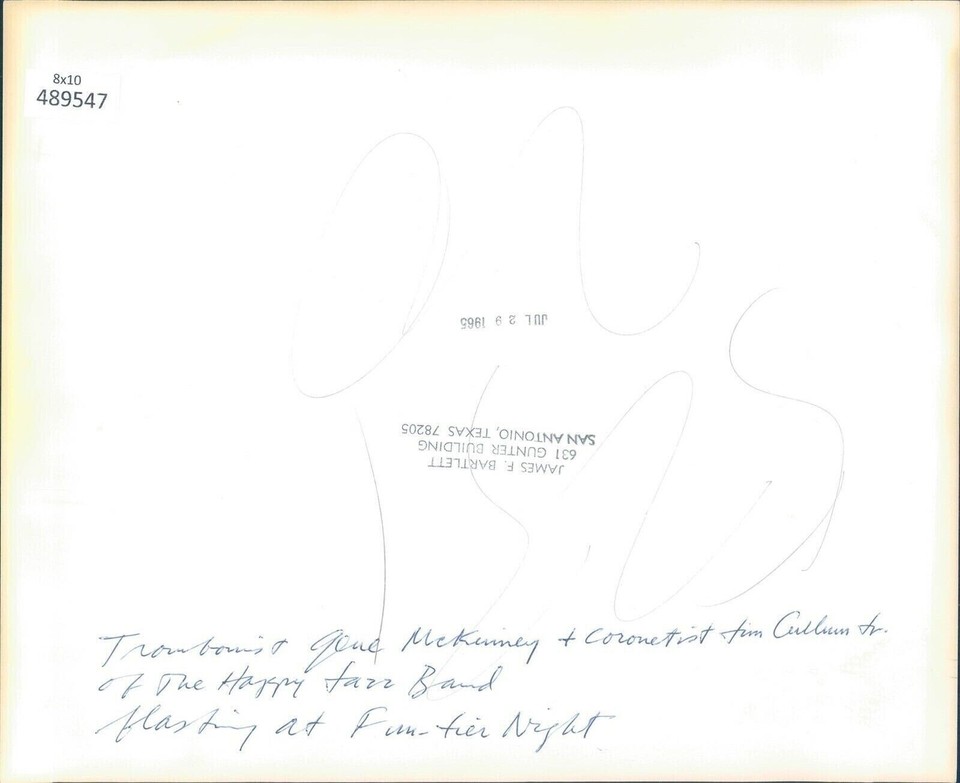 8x10
489547
JUL 29 1965
JAMES F. BARTLETT
631 GUNTER BUILDING
SAN ANTONIO, TEXAS 78205
Trombonist Gene McKinney + Coronetist Jim Cullum Jr.
of The Happy Jazz Band
blasting at Fun-tier Night